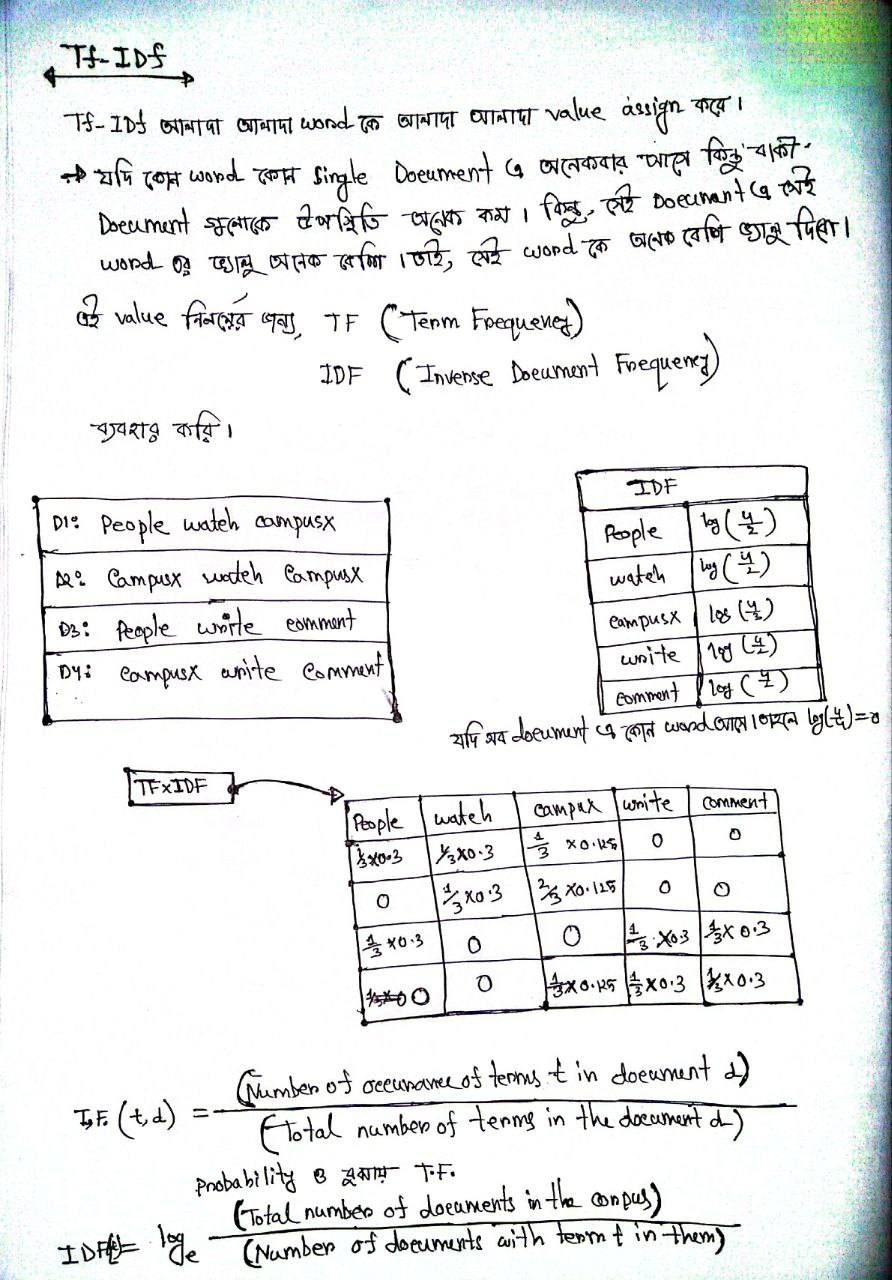 Tf-IDf
Tf-IDf আলাদা আলাদা word কে আলাদা আলাদা value assign করে।
→ যদি কোন word কোন Single Document এ অনেকবার আসে কিন্তু বাকী
Document গুলোতে উপস্থিতি অনেক কম। কিন্তু, সেই Document এ সেই
word এর ভ্যালু অনেক বেশি। তাই, সেই word কে অনেক বেশি ভ্যালু দিবো।
এই value নির্নয়ের জন্য, TF (Term Frequency)
IDF (Inverse Document Frequency)
ব্যবহার করি।
D1: People watch campusx
D2: Campusx watch Campusx
D3: People write comment
D4: campusx write Comment
IDF
People log(4/2)
watch log(4/2)
campusx log(4/3)
write log(4/2)
comment log(4/2)
যদি সব document এ কোন word আসে। তাহলে log(4/4)=0
TF×IDF
People watch campux write comment
1/3×0.3 1/3×0.3 1/3 ×0.125 0 0
0 1/3×0.3 2/3×0.125 0 0
1/3×0.3 0 0 1/3×0.3 1/3×0.3
0 0 1/3×0.125 1/3×0.3 1/3×0.3
T.F. (t,d) = (Number of occurance of terms t in document d)
(Total number of terms in the document d)
Probability ও বুঝায় T.F.
(Total number of documents in the corpus)
IDF(t)= logₑ
(Number of documents with term t in them)